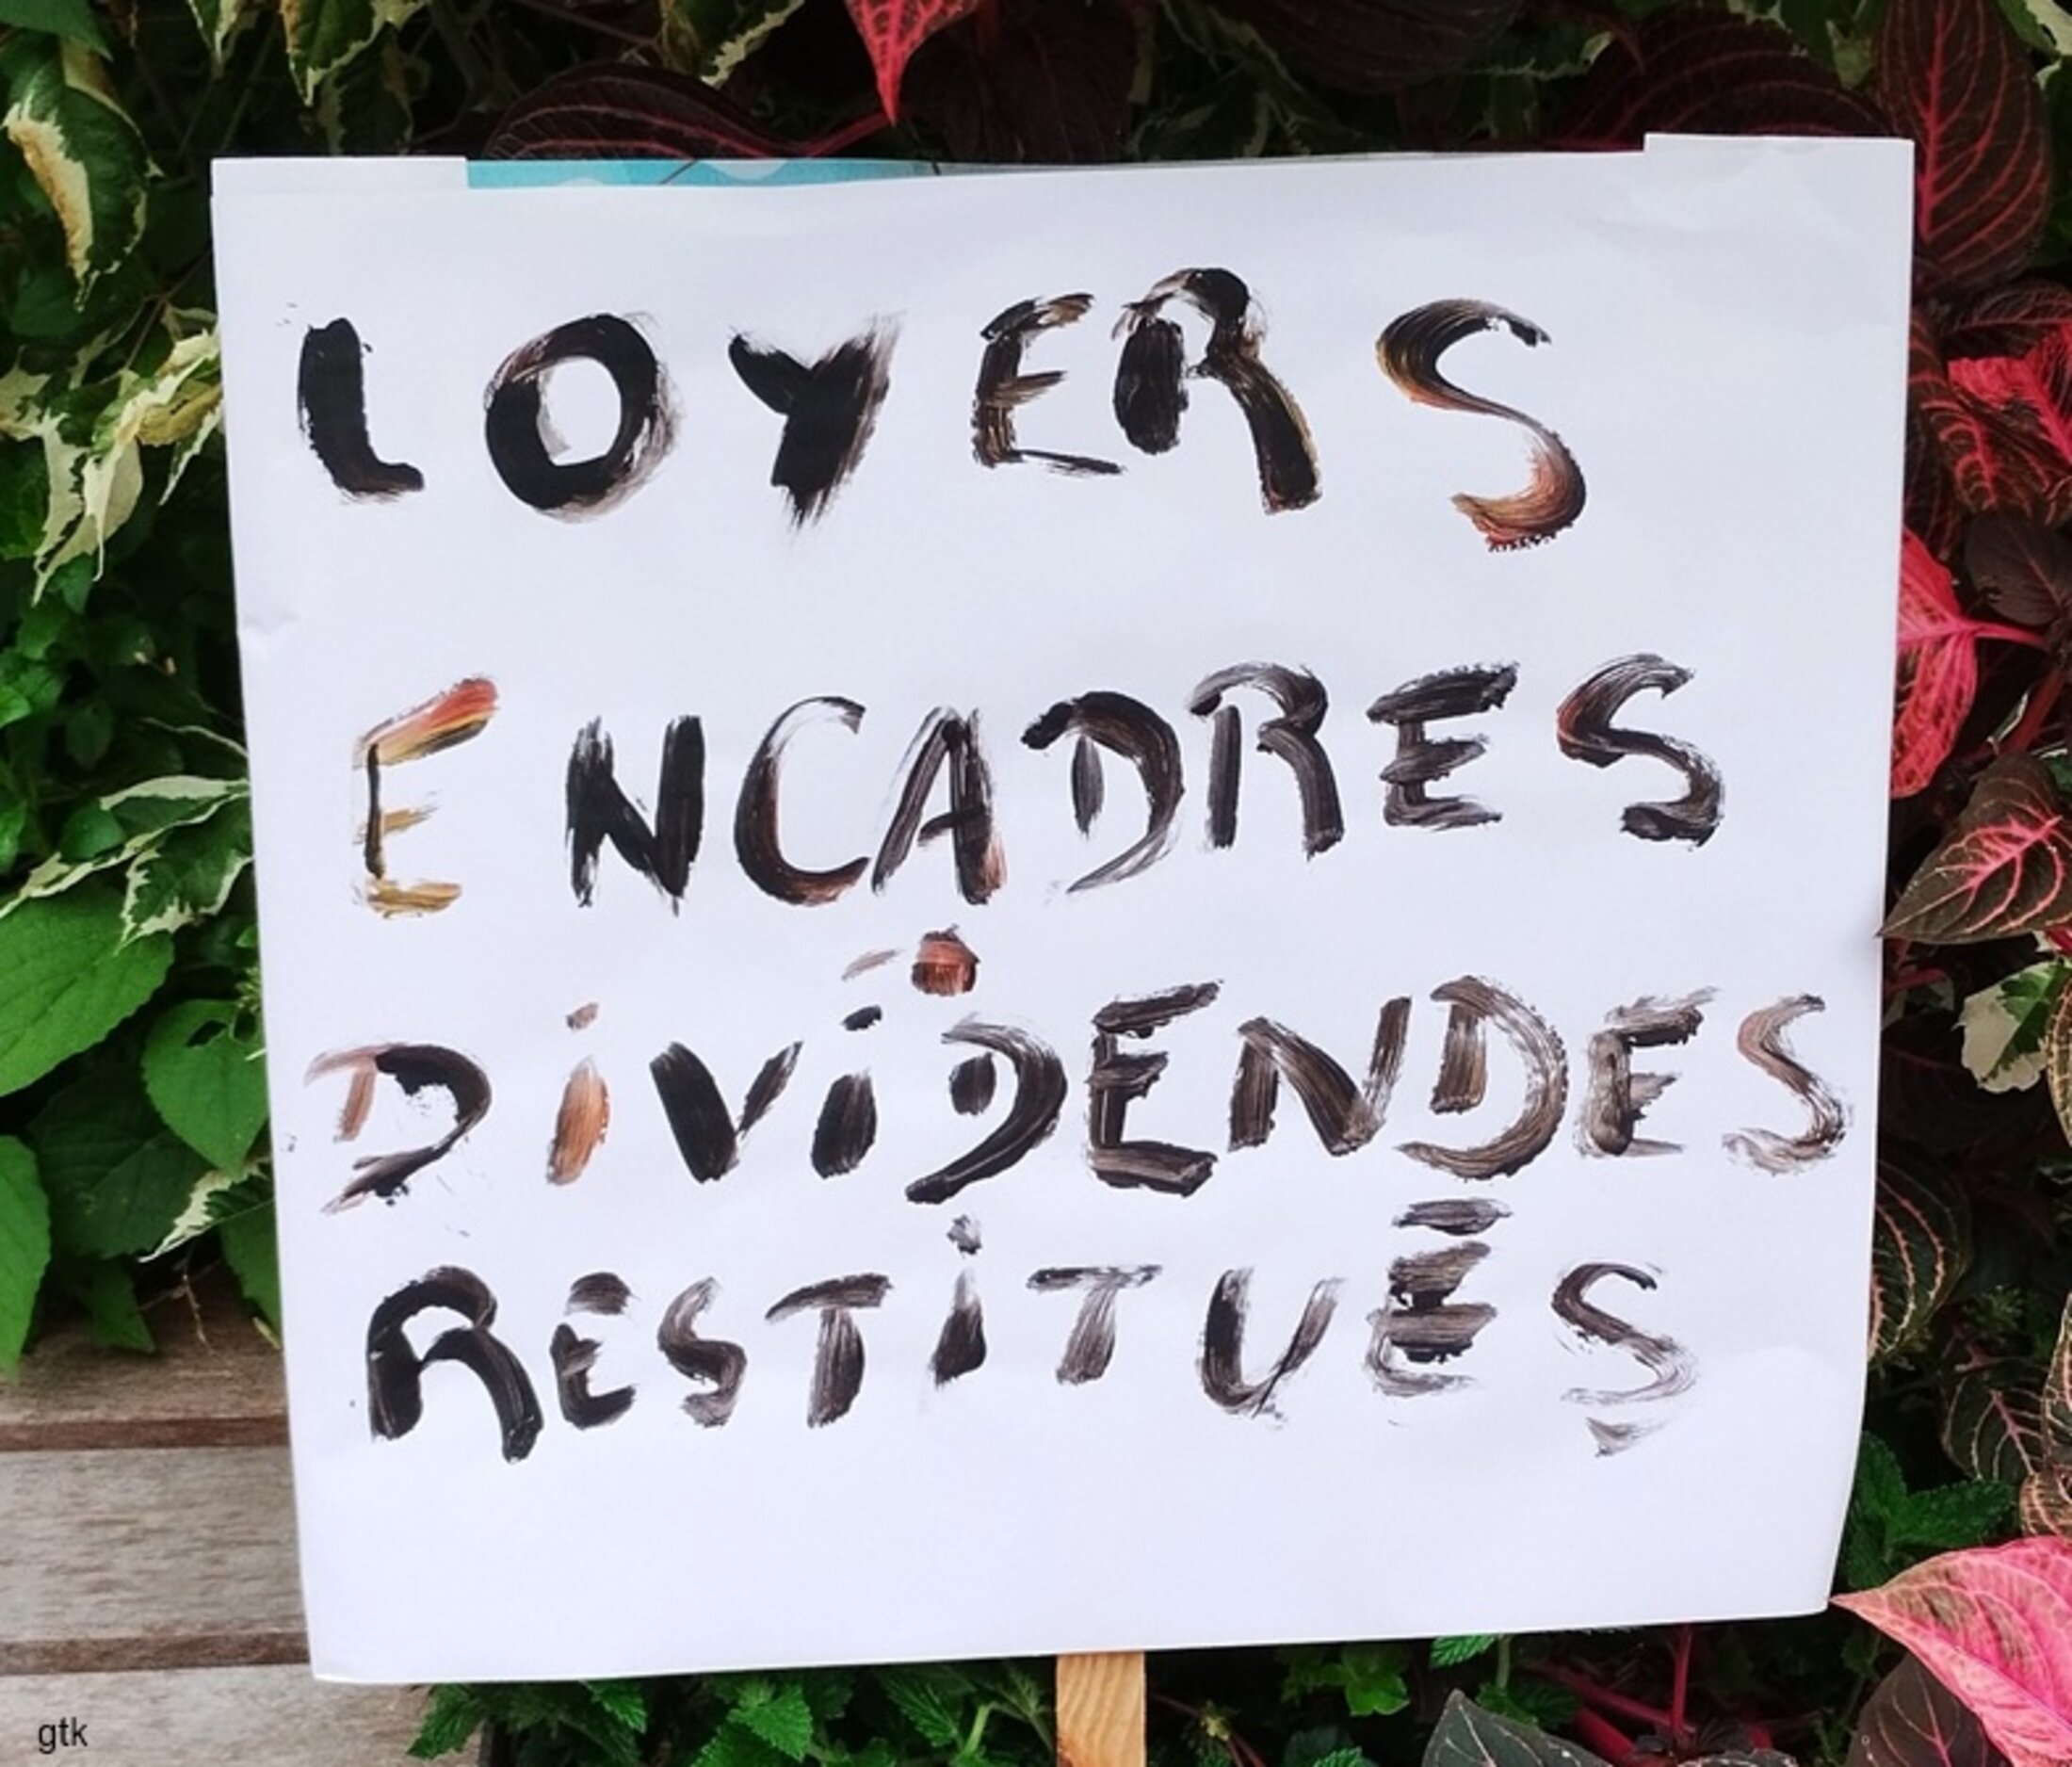 LOYERS
ENCADRES
DiViDENDES
RESTiTUÉS
gtk